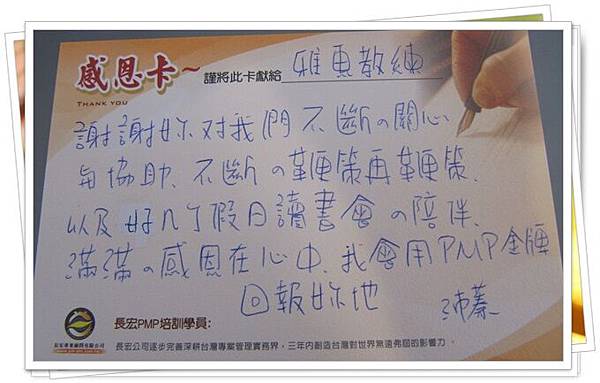 感恩卡~
THANK YOU
謹將此卡獻給 雅惠教練
謝謝妳对我們不斷の關心
与協助、不斷の鞭策再鞭策、
以及好几个假日讀書會の陪伴、
滿滿の感恩在心中、我會用PMP金牌
回報妳地
沛蓁
長宏PMP培訓學員:
長宏公司逐步完善深耕台灣專案管理實務界,三年內創造台灣對世界無遠弗屆的影響力.